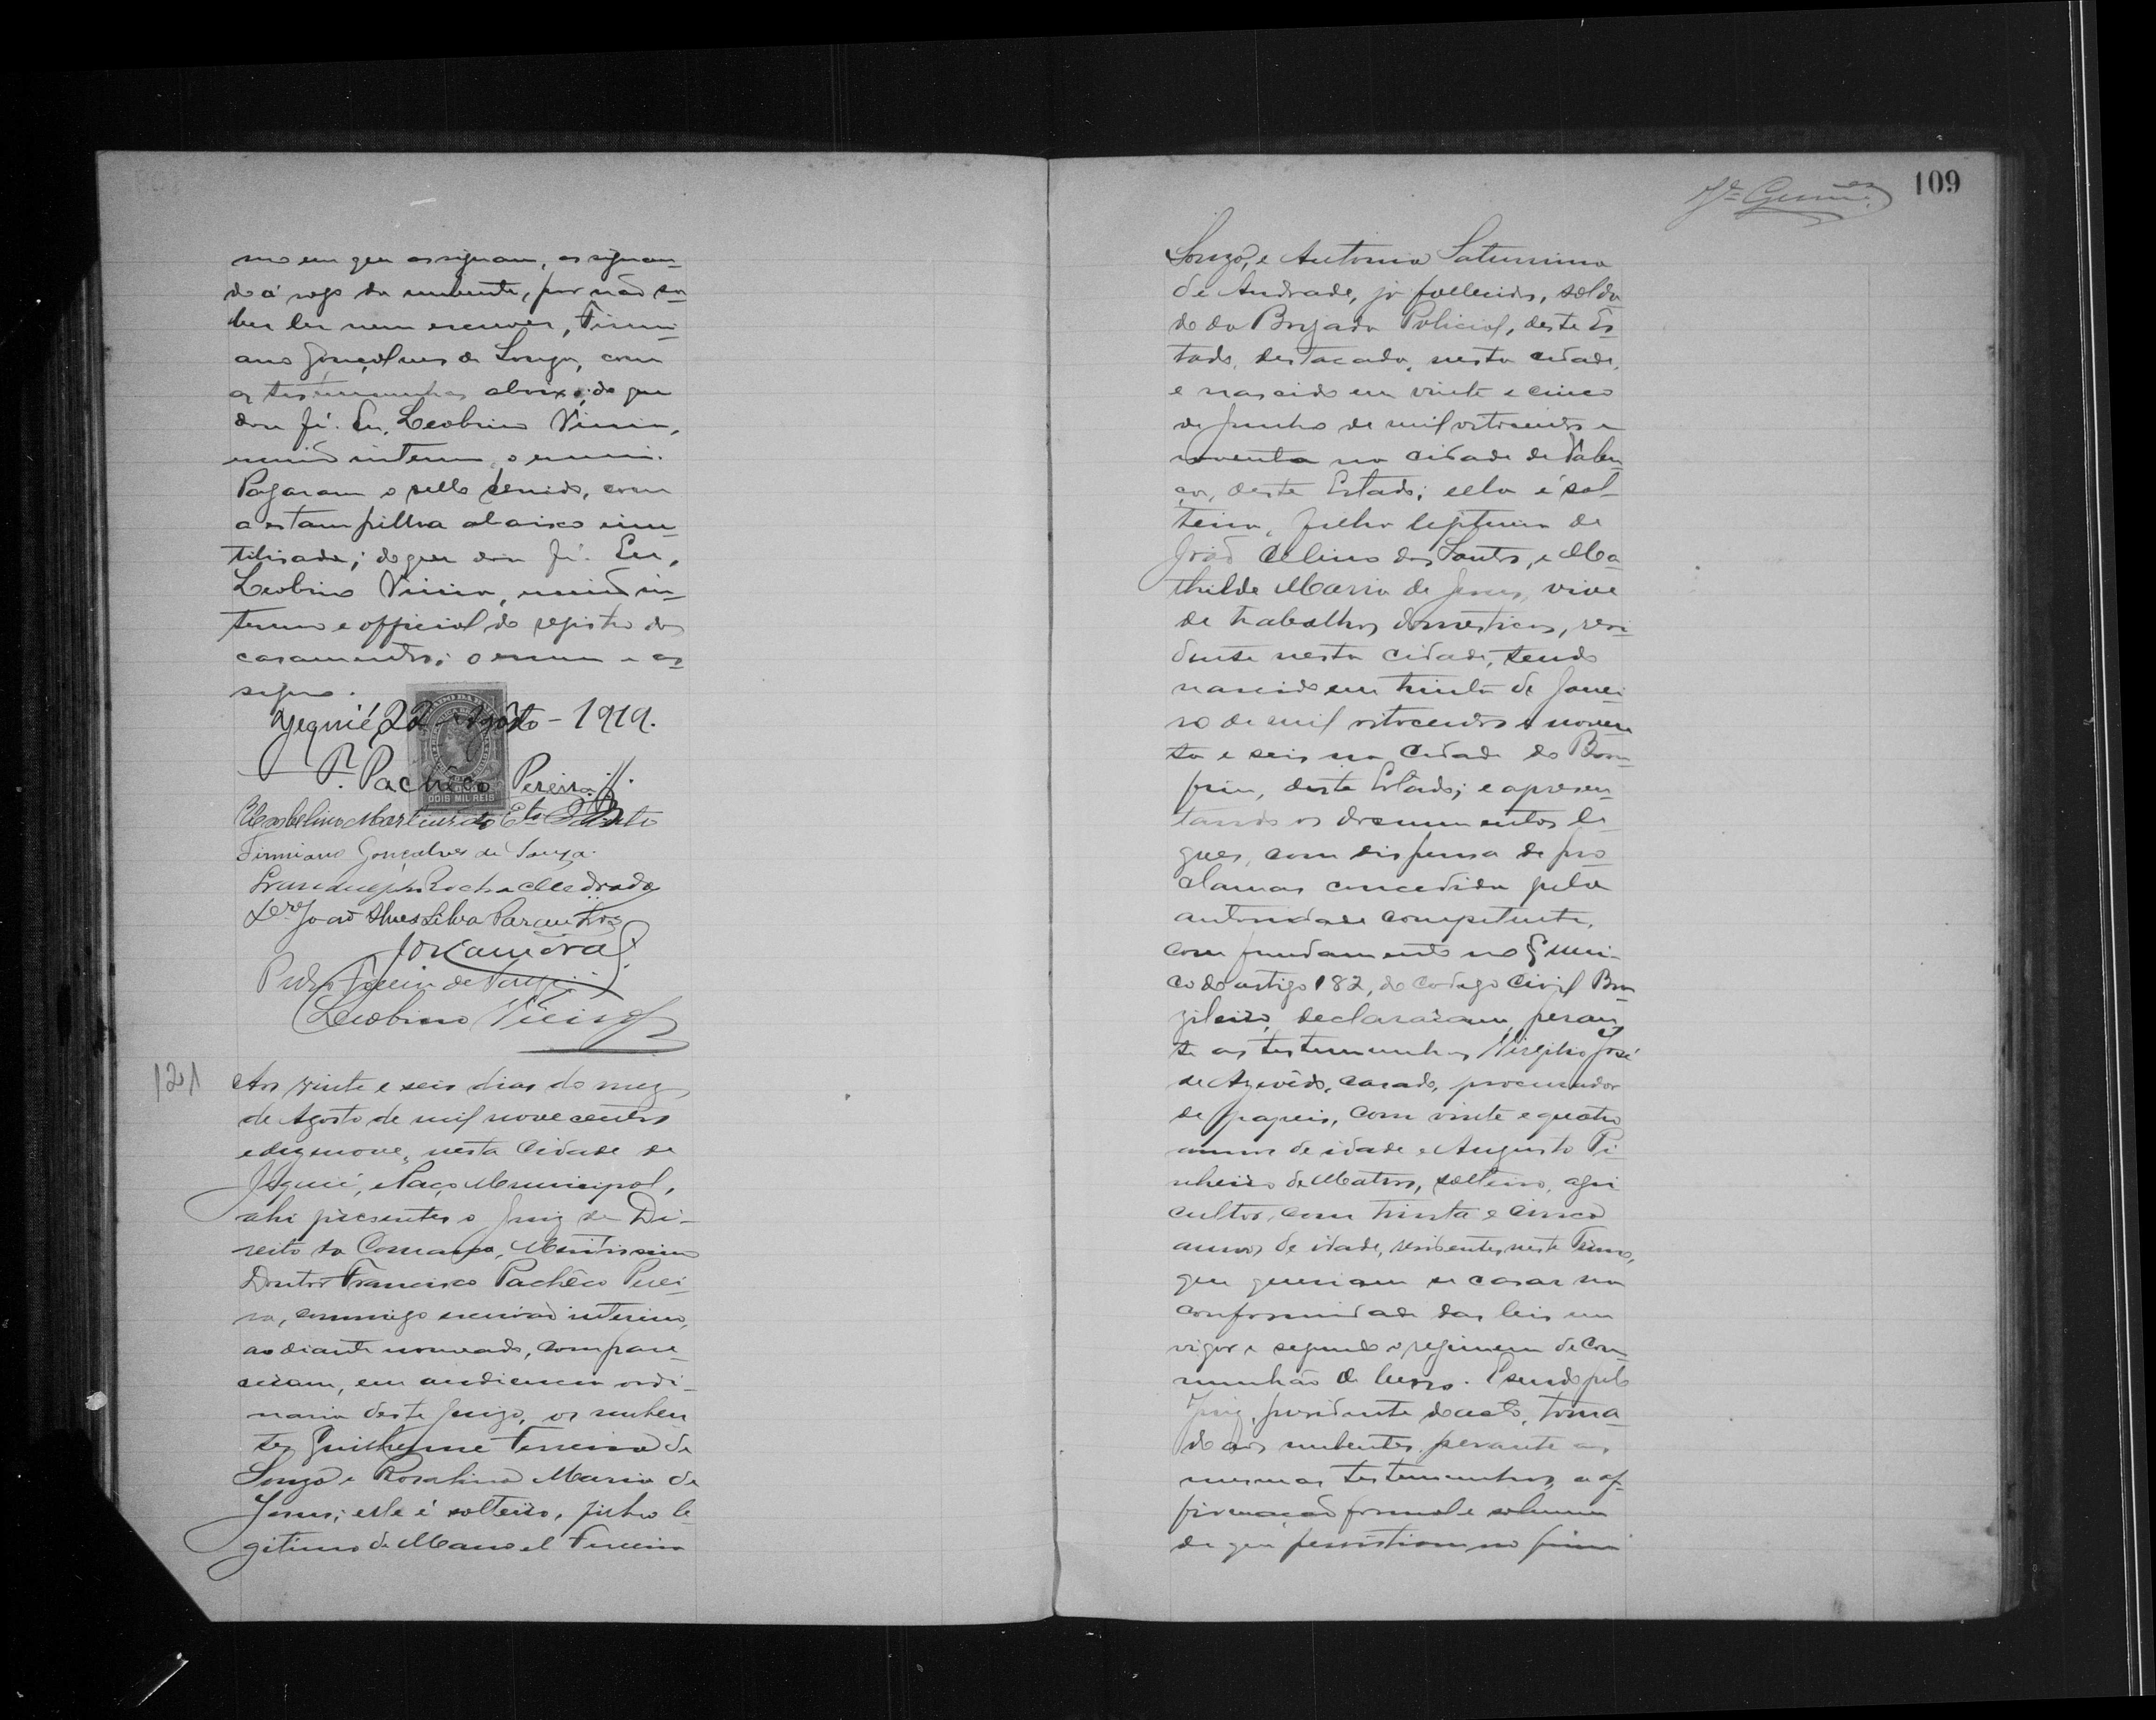 mo em que assignam, assignan-
do á rogo da nubente, por não sa-
ber ler nem escrever, Firmi-
ano Gonçalves de Souza, com
as testemunhas abaixo; do que
dou fé. Eu, Leobino Vieira,
escrivão interino, o escrevi.
Pagaram o sello devido, com
a estampilha abaixo inu-
tilisada; do que dou fé. Eu,
Leobino Vieira, escrivão in-
terino e official do registro dos
casamentos; o escrevi e as-
signo.
Jequié, 22 - Agosto - 1919.
P. Pachêco Pereira
DOIS MIL REIS
Martins do Esto Santo
Firmiano Gonçalves de Souza
Rocha Medrado
João Alves Silva Paranhos
Pedro de
Leobino Vieira
121
Aos vinte e seis dias do mez
de Agosto de mil novecentos
e dezenove, nesta Cidade de
Jequié, e Paço Municipal,
ahi presentes o Juiz de Di-
reito da Comarca, Meritissimo
Doutor Francisco Pachêco Perei-
ra, commigo escrivão interino,
ao diante nomeado, compare-
ceram, em audiencia ordi-
naria deste Juizo, os nuben-
tes Guilherme Ferreira de
Souza e Rosalina Maria de
Jesus; elle é solteiro, filho le-
gitimo de Manoel Ferreira
109
Souza, e Antonia Saturnina
de Andrade, já fallecidos, solda-
do da Brigada Policial, deste Es-
tado, destacado, nesta cidade,
e nascido em vinte e cinco
de Junho de mil oitocentos e
noventa na cidade de Valen-
ça, deste Estado; ella é sol-
teira, filha legitima de
João Celino dos Santos, e Ma-
thilde Maria de Jesus, vive
de trabalhos domesticos, resi-
dente nesta cidade, tendo
nascido em trinta de Janei-
ro de mil oitocentos e noven-
ta e seis na Cidade do Bom-
fim, deste Estado; e apresen-
tando os documentos le-
gaes, com dispensa de pro-
clamas concedida pela
autoridade competente,
com fundamento no § uni-
co do artigo 182, do Codigo Civil Bra-
zileiro, declararam, peran-
te as testemunhas, Virgilio José
de Azevêdo, casado, procurador
de papeis, com vinte e quatro
annos de idade e Augusto Pi-
nheiro de Mattos, solteiro, agri-
cultor, com trinta e cinco
annos de idade, residentes neste Termo,
que queriam se casar na
conformidade das leis em
vigor e segundo o regimem de Com-
munhão de bens. E sendo pelo
Juiz, presidente do acto, toma-
do aos nubentes, perante as
mesmas testemunhas, a af-
firmação formal e solemne
de que persistiam no firme